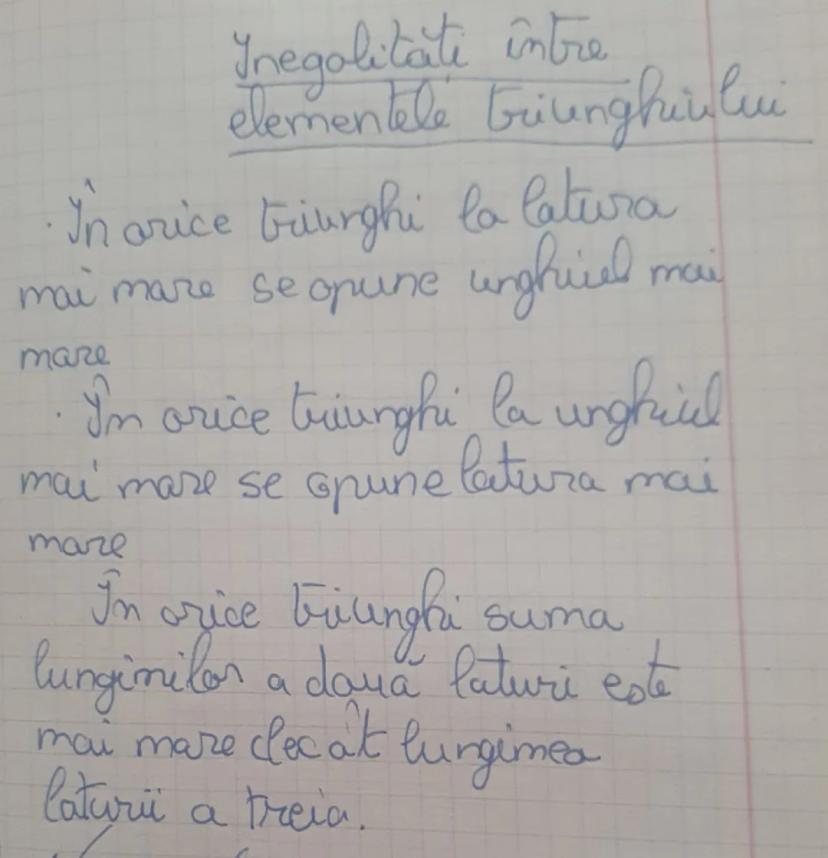 Inegalități între
elementele triunghiului
· În orice triunghi la latura
mai mare se opune unghiul mai
mare
· În orice triunghi la unghiul
mai mare se opune latura mai
mare
În orice triunghi suma
lungimilor a două laturi este
mai mare decât lungimea
laturii a treia.